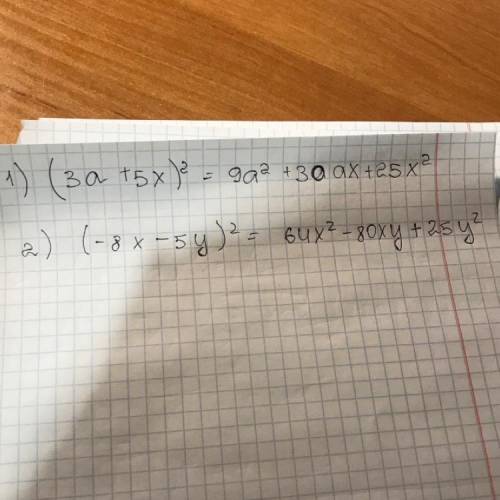 1) (3a + 5x)² = 9a² + 30ax + 25x²
2) (-8x - 5y)² = 64x² - 80xy + 25y²